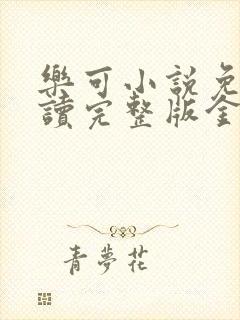 樂可小說免
讀完整版全
青夢花